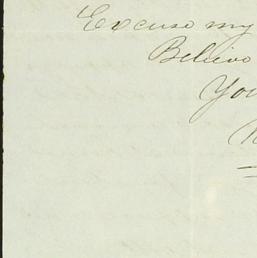 Excuse my
Believe
You